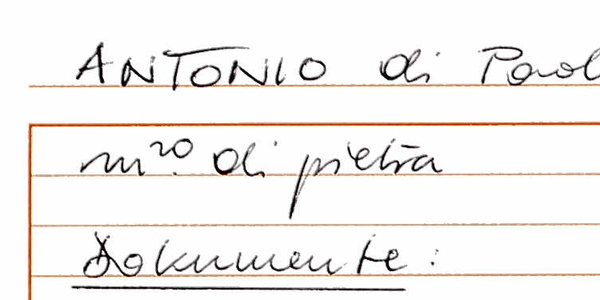 ANTONIO di Paol
m.ro di pietra
Dokumente: